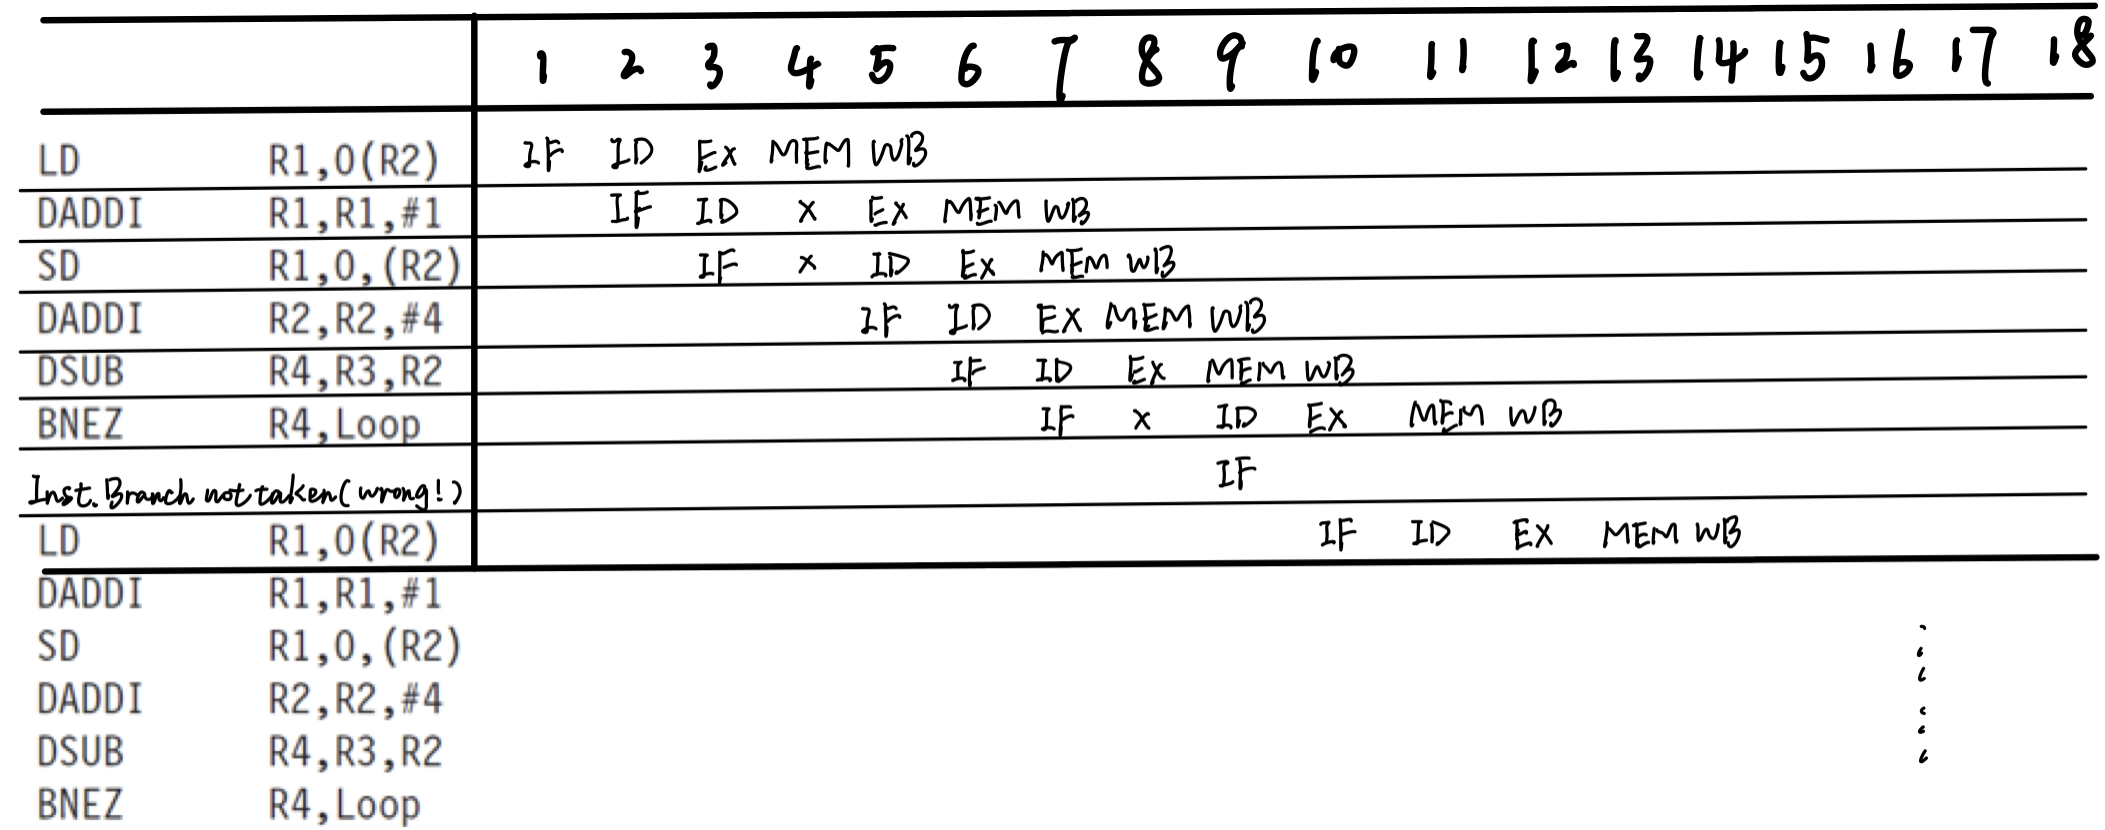 1 2 3 4 5 6 7 8 9 10 11 12 13 14 15 16 17 18
LD R1,0(R2) IF ID EX MEM WB
DADDI R1,R1,#1 IF ID x EX MEM WB
SD R1,0,(R2) IF x ID EX MEM WB
DADDI R2,R2,#4 IF ID EX MEM WB
DSUB R4,R3,R2 IF ID EX MEM WB
BNEZ R4,Loop IF x ID EX MEM WB
Inst. Branch not taken (wrong!) IF
LD R1,0(R2) IF ID EX MEM WB
DADDI R1,R1,#1
SD R1,0,(R2)
DADDI R2,R2,#4
DSUB R4,R3,R2
BNEZ R4,Loop